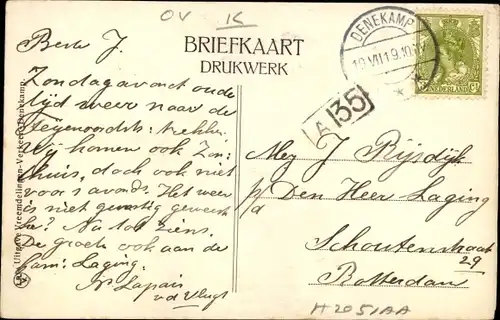 OV K
BRIEFKAART
DRUKWERK
DENEKAMP
19 VII 19.10
NEDERLAND
A 135
Beste J.
Zondagavond oude
tijd weer naar de
Feijenoordsts:
Wij komen ook Zon
thuis, doch ook niet
voor s avonds. Het weer
is niet gunstig geweest
he? Nu tot ziens.
De groeten ook aan de
fam: Laging.
v.d. Vlugt
Mej J Rijsdijk
p/a Den Heer Laging
Schoutenstraat
29
Rotterdam
H2051AA
Uitgave Vreemdelingen-Verkeer Denekamp.